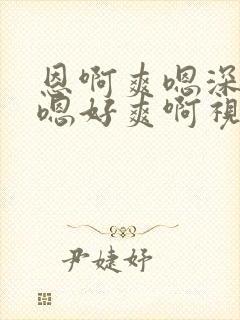 恩啊爽嗯深
嗯好爽啊视
尹婕妤